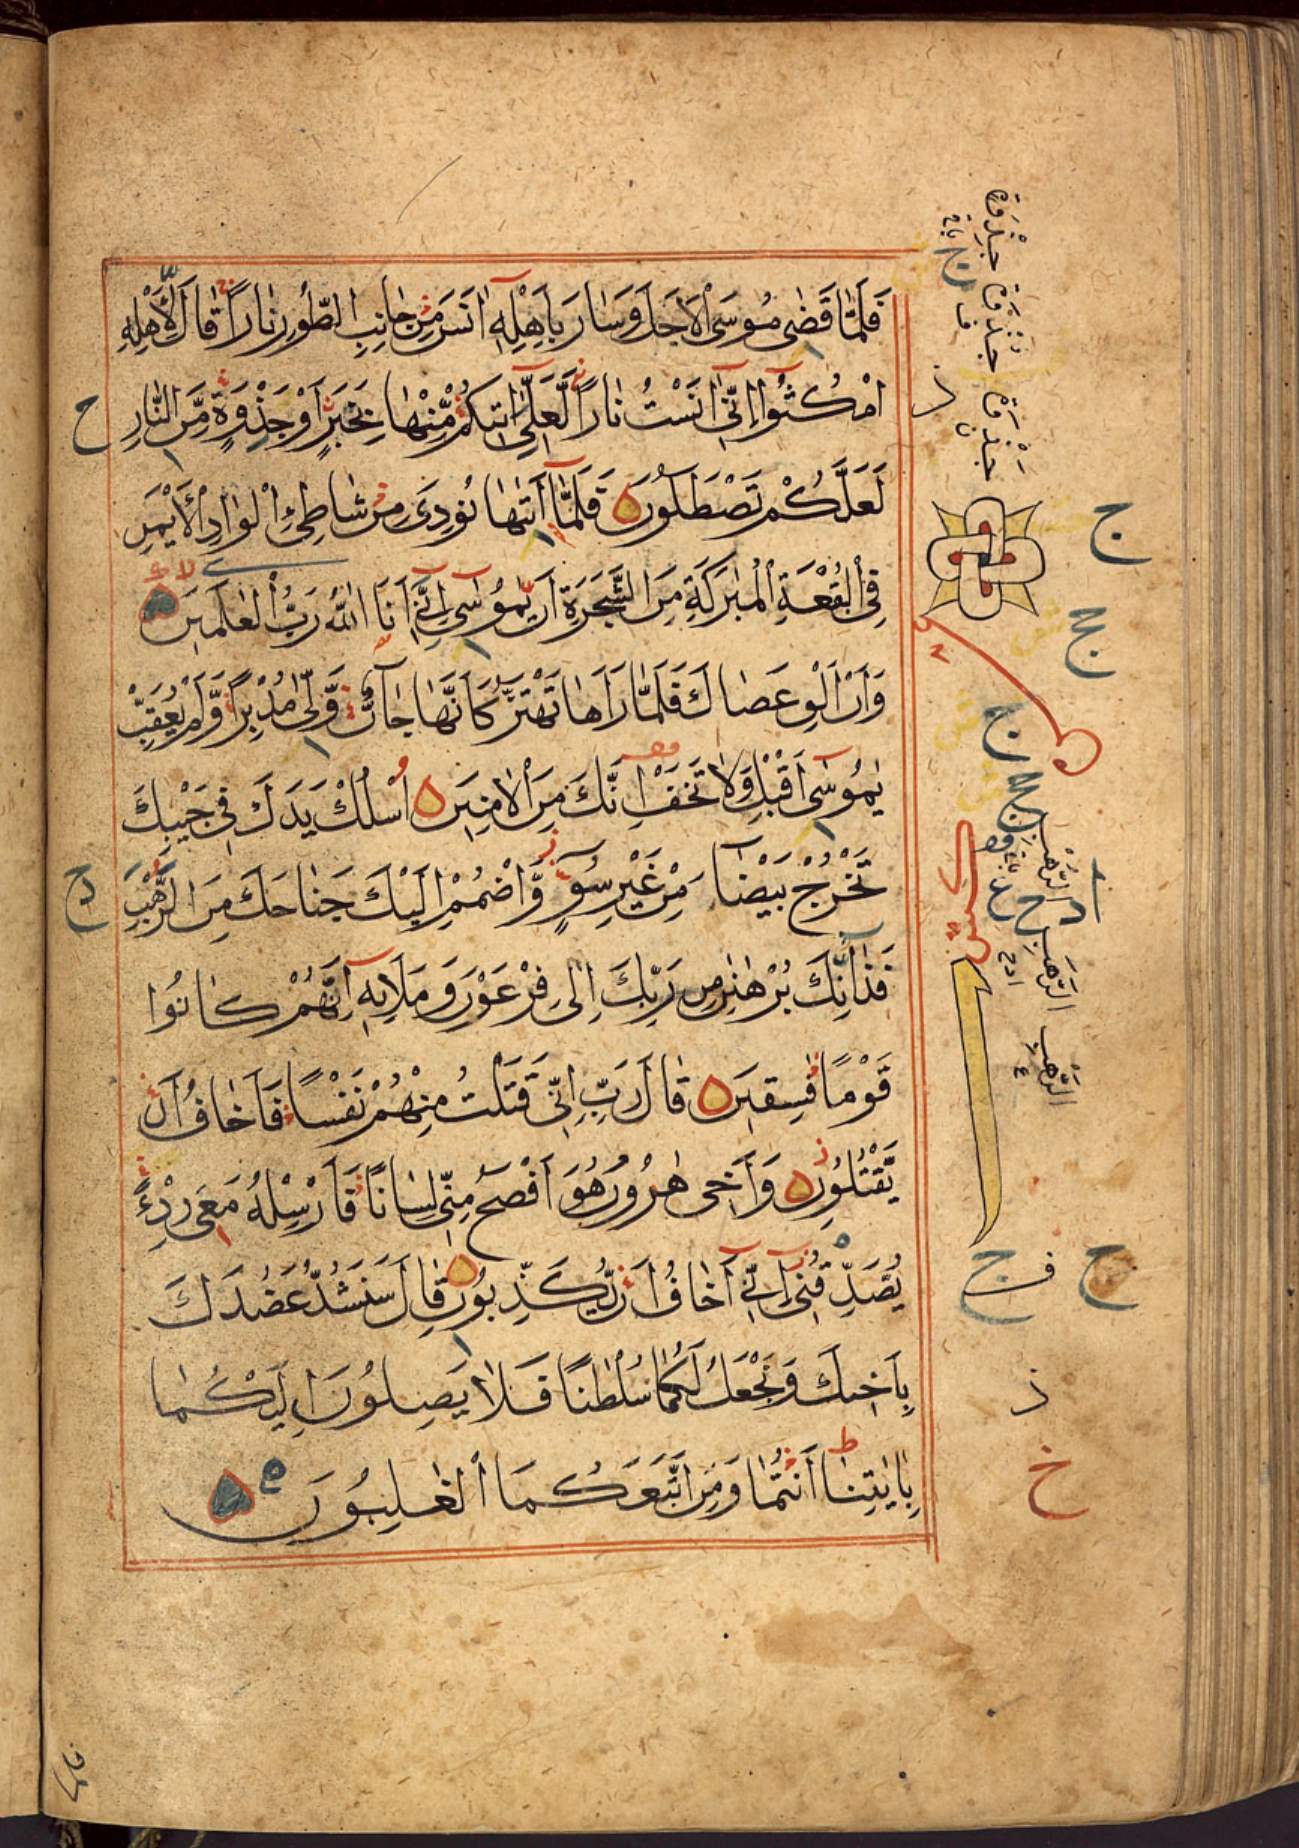 فَلَمَّا قَضٰى مُوسَى الْاَجَلَ وَسَارَ بِاَهْلِهٖ اٰنَسَ مِنْ جَانِبِ الطُّورِ نَارًا قَالَ لِاَهْلِهِ
امْكُثُوا اِنّٖى اٰنَسْتُ نَارًا لَعَلّٖى اٰتٖيكُمْ مِنْهَا بِخَبَرٍ اَوْ جَذْوَةٍ مِنَ النَّارِ
لَعَلَّكُمْ تَصْطَلُونَ فَلَمَّا اَتٰيهَا نُودِىَ مِنْ شَاطِئِ الْوَادِ الْاَيْمَنِ
فِى الْبُقْعَةِ الْمُبٰرَكَةِ مِنَ الشَّجَرَةِ اَنْ يٰمُوسٰى اِنّٖى اَنَا اللّٰهُ رَبُّ الْعٰلَمٖينَ
وَاَنْ اَلْقِ عَصَاكَ فَلَمَّا رَاٰهَا تَهْتَزُّ كَاَنَّهَا جَانٌّ وَلّٰى مُدْبِرًا وَلَمْ يُعَقِّبْ
يٰمُوسٰى اَقْبِلْ وَلَا تَخَفْ اِنَّكَ مِنَ الْاٰمِنٖينَ اُسْلُكْ يَدَكَ فٖى جَيْبِكَ
تَخْرُجْ بَيْضَاءَ مِنْ غَيْرِ سُوءٍ وَاضْمُمْ اِلَيْكَ جَنَاحَكَ مِنَ الرَّهْبِ
فَذَانِّكَ بُرْهٰنٰنِ مِنْ رَبِّكَ اِلٰى فِرْعَوْنَ وَمَلَائِهٖ اِنَّهُمْ كَانُوا
قَوْمًا فٰسِقٖينَ قَالَ رَبِّ اِنّٖى قَتَلْتُ مِنْهُمْ نَفْسًا فَاَخَافُ اَنْ
يَقْتُلُونِ وَاَخٖى هٰرُونُ هُوَ اَفْصَحُ مِنّٖى لِسَانًا فَاَرْسِلْهُ مَعِىَ رِدْءًا
يُصَدِّقُنٖى اِنّٖى اَخَافُ اَنْ يُكَذِّبُونِ قَالَ سَنَشُدُّ عَضُدَكَ
بِاَخٖيكَ وَنَجْعَلُ لَكُمَا سُلْطٰنًا فَلَا يَصِلُونَ اِلَيْكُمَا
بِاٰيٰتِنَا اَنْتُمَا وَمَنِ اتَّبَعَكُمَا الْغٰلِبُونَ
جِذْوَةٍ
جُذْوَةٍ
جَذْوَةٍ
الرُّهْبِ
الرَّهَبِ
الرَّهْبِ
فلما